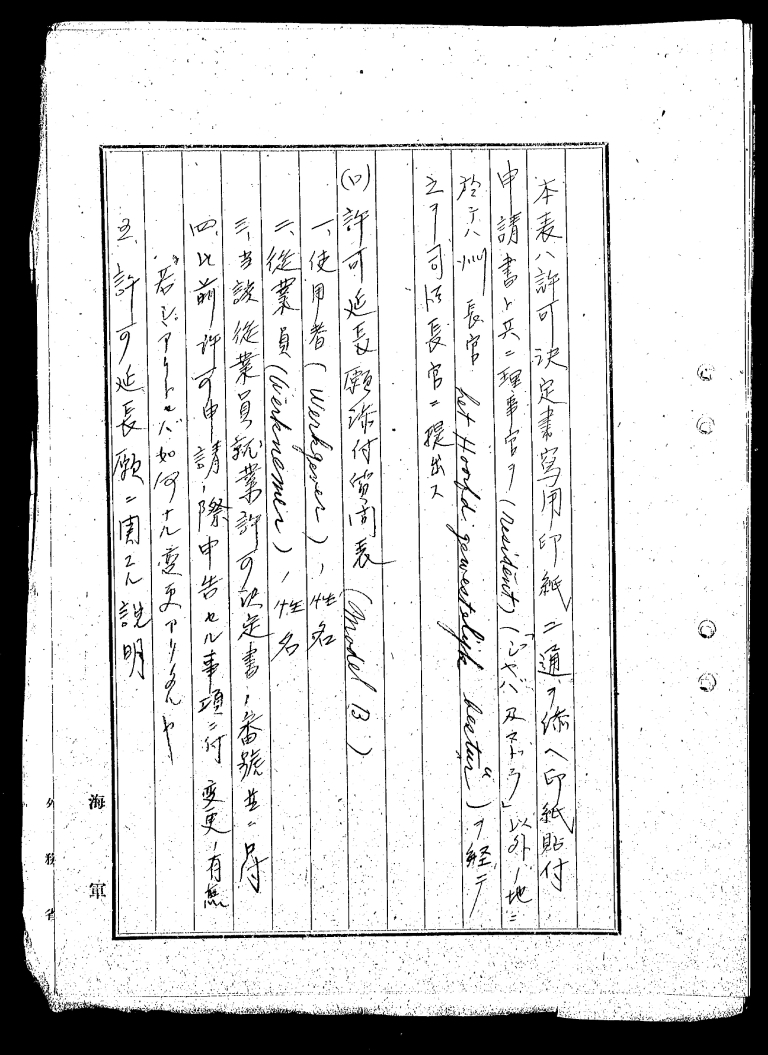 本表ハ許可決定書寫用印紙二通ヲ添ヘ印紙貼付
申請書ト共ニ理事官ヲ (resident) (「ジャバ及マドラ」以外ノ地ニ
於テハ州長官 het Hoofd gewestelijk bestuur“) ヲ経テ
之ヲ司法長官ニ提出ス
(ロ) 許可延長願添付質問表 (Model B)
一、使用者 (Werkgever) ノ姓名
二、従業員 (Werknemer) ノ姓名
三、当該従業員就業許可決定書ノ番號並ニ日付
四、以前許可申請ノ際申告セル事項ニ付変更ノ有無
若シアリトセバ如何ナル変更アリタルヤ
五、許可延長願ニ関スル説明
海軍
外務省